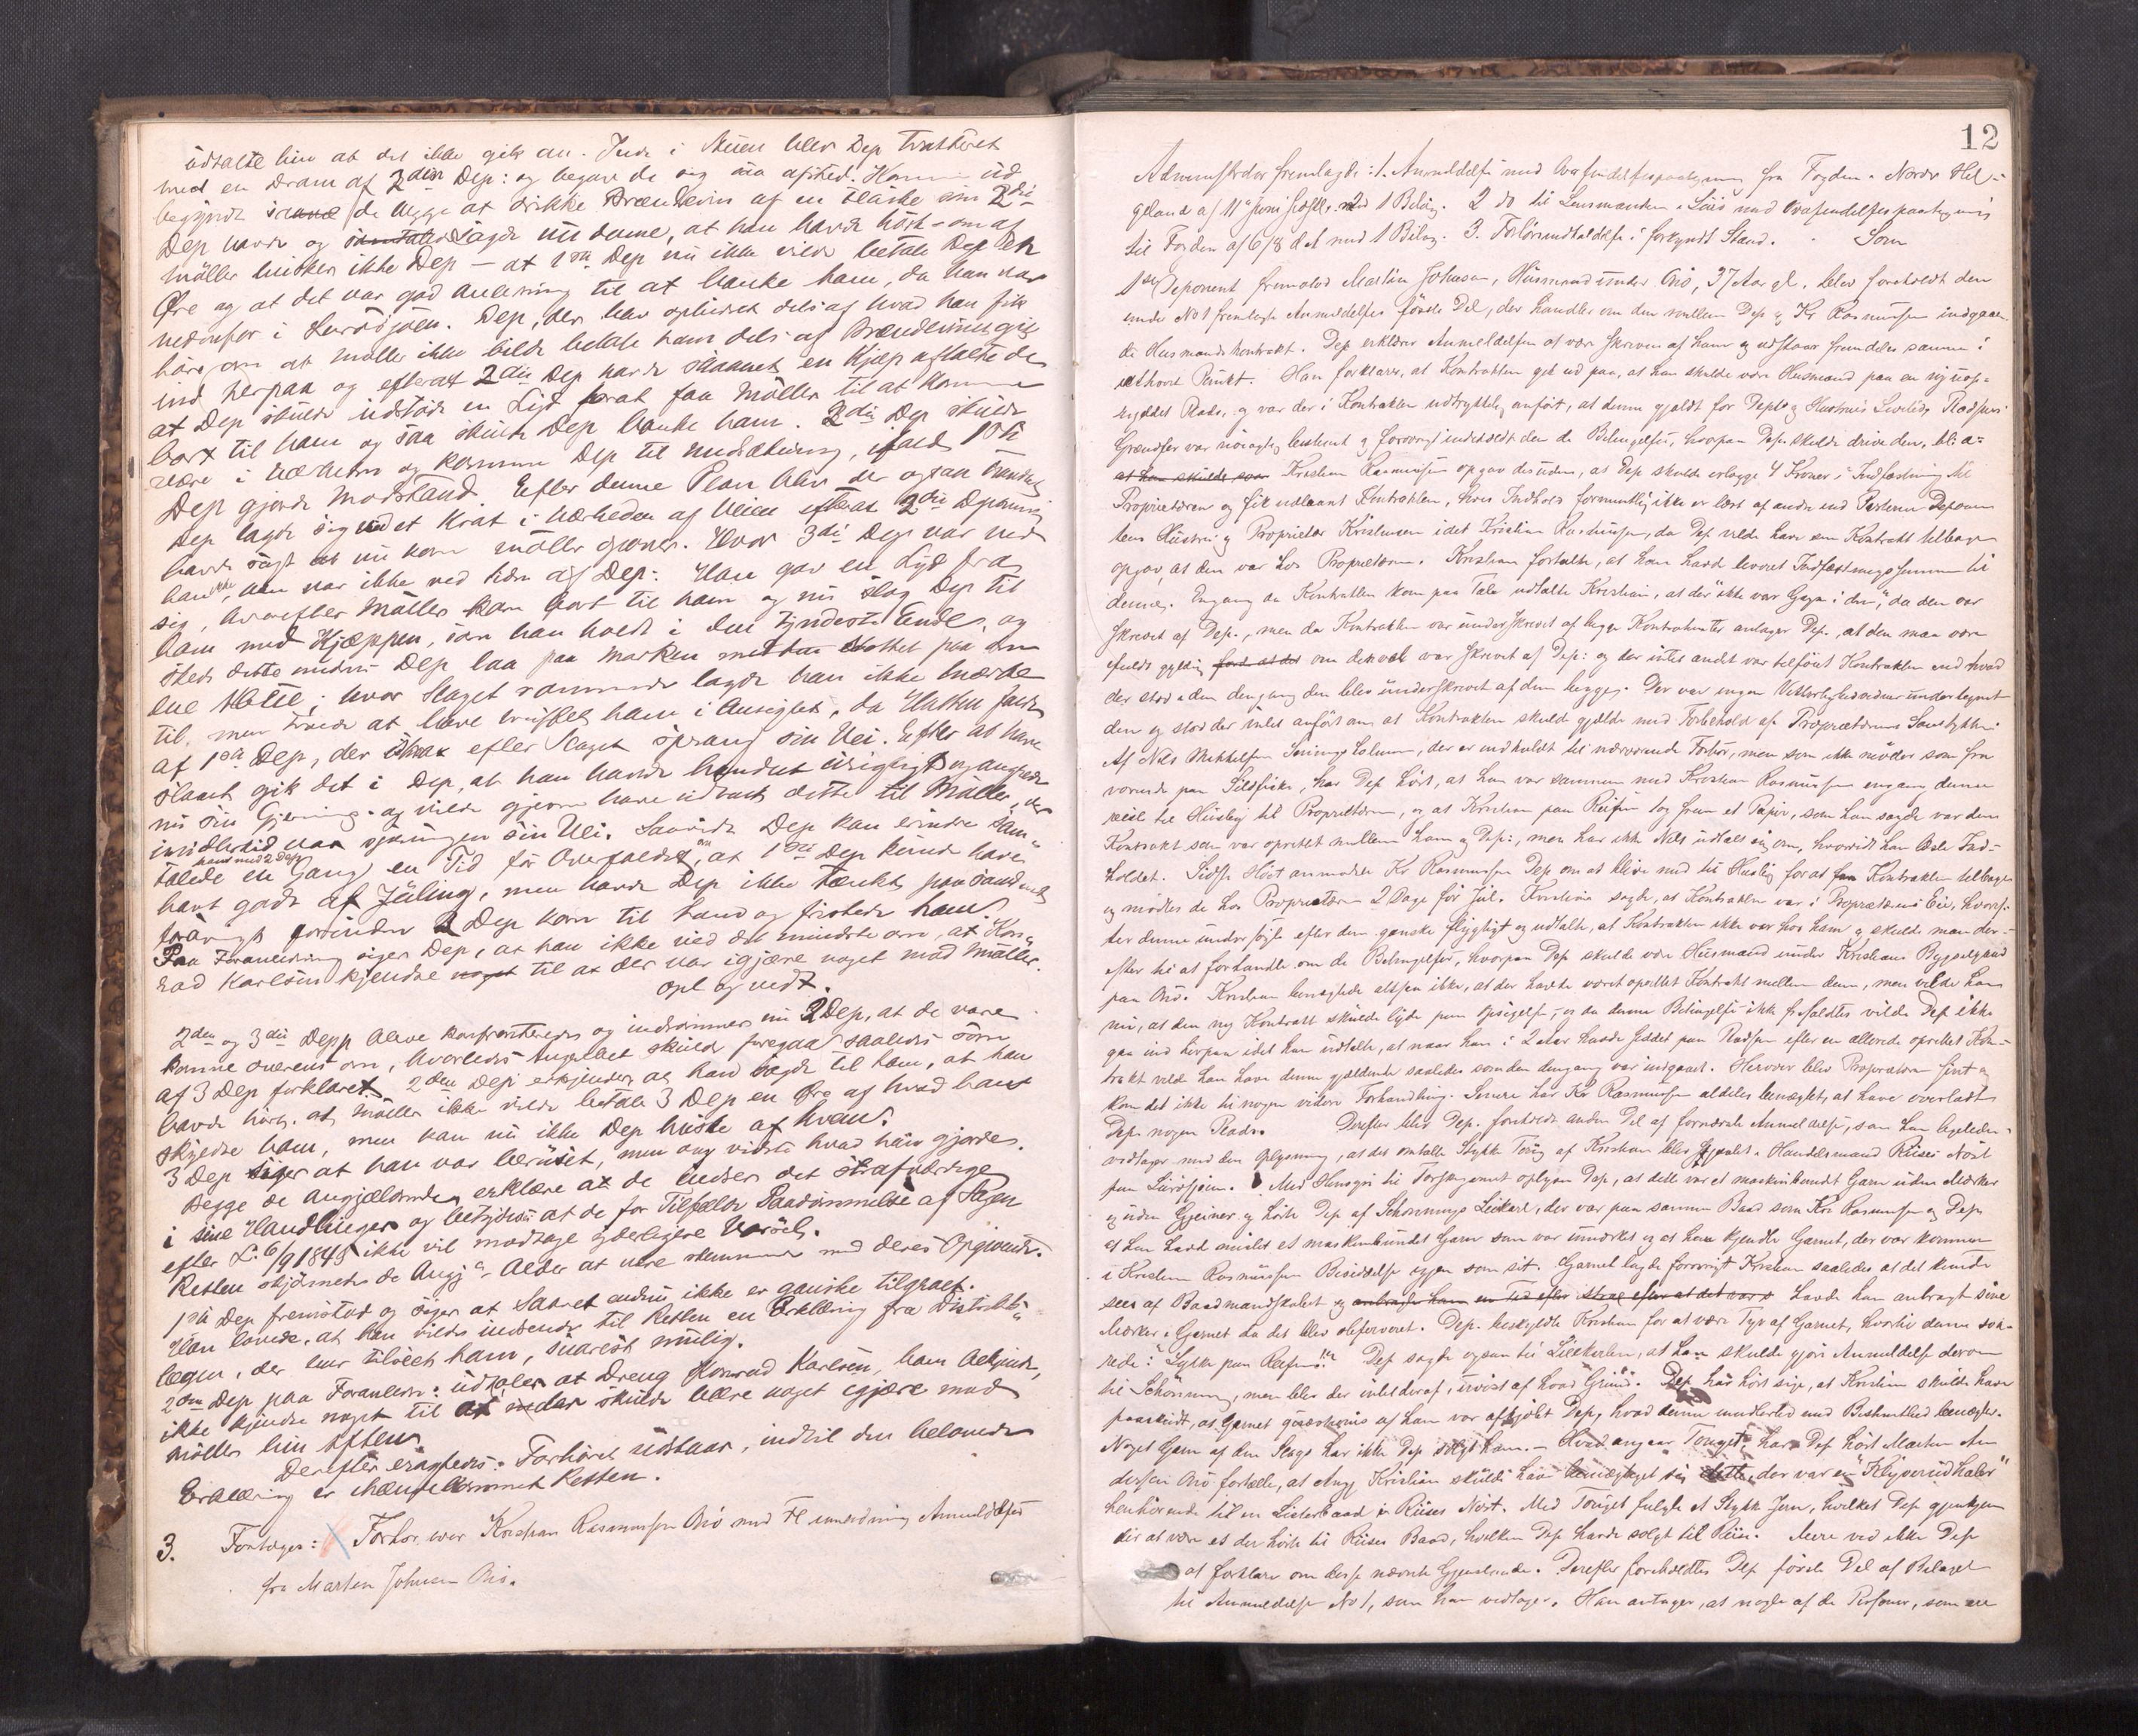 udtalte hin at det ikke gik an. Inde i Stuen blev Dep tratteret
med en Dram af 2den Dep: og begave de sig saa afsted.
begyndte de begge at drikke Brændevin af en Flaske som 2den
Dep havde og sagde nu denne, at han havde hørt - om af
Møller husker ikke Dep - at 1ste Dep nu ikke vilde betale Dep en
Øre og at det var god Anledning til at banke ham, da han var
nedenfor i Lurøsjøen. Dep, der blev ophidset dels af hvad han fik
høre om at Møller ikke vilde betale ham dels af Brændevinet gik
ind herpaa og efterat 2den Dep havde skaaret en Kjæp aftalte de
at Dep skulde udstøde en Lyd forat faa Møller til at komme
bort til ham og saa skulde Dep banke ham. 2den Dep skulde
være i Nærheden og komme Dep til Undsætning, ifald 1ste
Dep gjorde Modstand. Efter denne Plan blev der ogsaa
Dep lagde sig ved et Krat i Nærheden af Veien efterat 2den Deponent
havde sagt at nu kom Møller Hvor 3die Dep var ved
han ikke, han var ikke ved Siden af Dep: Han gav en Lyd fra
sig, hvorefter Møller kom bort til ham og nu slog Dep til
ham med Kjæppen, som han holdt i den tyndeste Ende, og
skede dette medens Dep laa paa Marken støttet paa den
ene Albue; hvor Slaget rammede lagde han ikke Mærke
til, men troede at have truffet ham i Ansigtet, da Hatten faldt
af 1ste Dep, der strax efter Slaget sprang sin Vei. Efter at have
slaaet gik det i Dep, at han havde handlet urigtigt og angrede
nu sin Gjerning og vilde gjerne have udtalt dette til Møller, der
imidlertid var sprungen sin Vei. Saavidt Dep kan erindre sam-
talede han med 2 Dep en Gang en Tid før Overfaldet om, at 1ste Dep kunde have
havt godt af Juling, men havde Dep ikke tænkt paa saadant
forøvrigt forinden 2 Dep kom til ham og fristede ham.
Paa Foranledning siger Dep, at han ikke ved det mindste om, at Kon-
rad Karlsen kjendte noget til at der var igjære noget mod Møller.
Opl og vedt.
2den og 3die Depp bleve konfronterede og indrømmer nu 2 Dep, at de vare
komne overens om, hvorledes Angrebet skulde foregaa saaledes som
af 3 Dep forklaret. 2den Dep erkjender at han sagde til ham, at han
havde hørt, at Møller ikke vilde betale 3 Dep en Øre af hvad han
skyldte ham, men kan nu ikke Dep huske af hvem.
3 Dep siger at han var beruset, men dog vidste hvad han gjorde.
Begge de Angjældende erklære at de indser det strafværdige
i sine Handlinger og betydedes at de for Tilfælde Paadømmelse af Sagen
efter L. 6/9 1845 ikke vil modtage yderligere Varsel.
Retten skjønnede de Angj.s Alder at være stemmende med deres Opgivende.
1ste Dep fremstod og siger at Saaret endnu ikke er ganske tilgroet.
Han lovede, at han vilde indsende til Retten en Erklæring fra Distrikts-
lægen, der har tilseet ham, snarest mulig.
2den Dep paa Foranledn: udtaler at Dreng Konrad Karlsen, ham bekjendt,
ikke kjendte noget til at der skulde være noget igjære mod
Møller hin Aften
Derefter eragtedes: Forhøret udstaar, indtil den belovede
Erklæring er Retten.
3. Foretoges: Forhør over Kristian Rasmussen Onø med Fl i anledning Anmeldelse
fra Martin Johnsen Onø.
12
Administrator fremlagde: 1. Anmeldelse med Oversendelsespaategning fra Fogden i Nordre Hel-
geland af 11te Juni sidstl. med 1 Bilag. 2 do til Lensmanden i Lurø med Oversendelsespaategning
til Fogden af 6/8 d. A med 1 Bilag. 3. Forhørsindkaldelse i forkyndt Stand. Som
1ste Deponent fremstod Martin Johnsen, Husmand under Onø, 37 Aar gl, blev foreholdt den
under No 1 fremlagte Anmeldelses første Del, der handler om den mellem Dep og Kr Rasmussen indgaae-
de Husmandskontrakt. Dep erklærer Anmeldelsen at være skreven af ham og vedstaar fremdeles samme i
ethvert Punkt. Han forklarer, at Kontrakten gik ud paa, at han skulde være Husmand paa en nyop-
ryddet Plads, og var der i Kontrakten udtrykkelig anført, at denne gjaldt for Deps og Hustrues Levetid, Pladsens
Grændser var nøiagtig bestemt og forøvrigt indeholdt den de Betingelser, hvorpaa Dep skulde drive den, bl. a-
Kristian Rasmussen opgav desuden, at Dep skulde erlægge 4 Kroner i Indfæstning til
Proprietæren og fik udlaant Kontrakten, hvis Indhold formentlig ikke er læst af andre end Parterne Deponen-
tens Hustru og Proprietær Kristensen idet Kristian Rasmussen, da Dep vilde have sin Kontrakt tilbage
opgav, at den var hos Proprietæren. Kristian fortalte, at han havde leveret Indfæstningssummen til
denne. Engang da Kontrakten kom paa Tale udtalte Kristian, at der ikke var i den, da den var
skrevet af Dep., men da Kontrakten var underskrevet af begge Kontrahenter antager Dep., at den maa være
fuldt gyldig om den var skrevet af Dep: og der intet andet var tilføiet Kontrakten end hvad
der stod i den dengang den blev underskrevet af dem begge. Der var ingen Vitterlighedsvidner undertegnet
den og stod der intet anført om, at Kontrakten skulde gjælde med Forbehold af Proprietærens Samtykke.
Af Nils Mikkelsen, der er indkaldt til nærværende Forhør, men som ikke møder som fra-
værende paa Sildfiske, har Dep hørt, at han var sammen med Kristian Rasmussen engang denne
reiste til Husby til Proprietæren, og at Kristian paa Reisen tog frem et Papir, som han sagde var den
Kontrakt som var oprettet mellem ham og Dep:, men har ikke Nils udtalt sig om, hvorvidt han læste Ind-
holdet. Sidste Høst anmodede Kr Rasmussen Dep om at blive med til Husby for at faa Kontrakten tilbage
og mødtes de hos Proprietæren 2 Dage før Jul. Kristian sagde, at Kontrakten var i Proprietærens Eie, hvoref-
ter denne undersøgte efter den ganske flygtigt og udtalte, at Kontrakten ikke var hos ham og skulde man der-
efter til at forhandle om de Betingelser, hvorpaa Dep skulde være Husmand under Kristians Bygselgaard
paa Onø. Kristian benægtede altsaa ikke, at der havde været oprettet Kontrakt mellem dem, men vilde han
nu, at den ny Kontrakt skulde lyde paa Opsigelse, og da denne Betingelse ikke frafaldtes vilde Dep ikke
gaa ind herpaa idet han udtalte, at naar han i 2 Aar havde siddet paa Pladsen efter en allerede oprettet Kon-
trakt vilde han have denne gjældende saaledes som den dengang var indgaaet. Herover blev Proprietæren sint og
kom det ikke til nogen videre Forhandling. Senere har Kr Rasmussen aldeles benægtet, at have overladt
Dep nogen Plads. Derefter blev Dep. foreholdt anden Del af fornævnte Anmeldelse, som han ligeledes
vedtager med den Oplysning, at det omtalte Stykke Toug af Kristian blev stjaalet i Handelsmand Riises Nøst
paa Lurøsjøen. Med Hensyn til Torskegarnet oplyser Dep, at dette var et maskinbundet Garn uden Mærker
og uden og hørte Dep af Schønnings Leiekarl, der var paa samme Baad som Kr Rasmussen og Dep
at han havde mistet et maskinbundet Garn som var umærket og at han kjendte Garnet, der var kommen
i Kristian Rasmussens Besiddelse igjen som sit. Garnet lagde forøvrigt Kristian saaledes at det kunde
sees af Baadmandskabet og havde han anbragt sine
Mærker i Garnet da det blev observeret. Dep. beskyldte Kristian for at være Tyv af Garnet, hvortil denne sva-
rede: "Lykke paa Reisen!" Dep sagde ogsaa til Leiekarlen, at han skulde gjøre Anmeldelse derom
til Schønning, men blev der intet deraf, uvist af hvad Grund. Dep har hørt sige, at Kristian skulde have
paaskudt, at Garnet af ham var afkjøbt Dep, hvad denne imidlertid med Bestemthed benægter.
Noget Garn af den Slags har ikke Dep solgt ham. - Hvad angaar Touget, har Dep hørt Martin An-
dersen Onø fortælle, at Ang Kristian skulde have sig dette, der var en "Klyverudhaler"
henhørende til en Listerbaad i Riises Nøst. Med Touget fulgte et Stykke Jern, hvilket Dep gjenkjen-
der at være et der hørte til Riises Baad, hvilken Dep havde solgt til Riise. Mere ved ikke Dep
at forklare om disse nævnte Gjenstande. Derefter foreholdtes Dep første Del af Bilaget
til Anmeldelse No 1, som han vedtager. Han antager, at nogle af de Personer, som ere